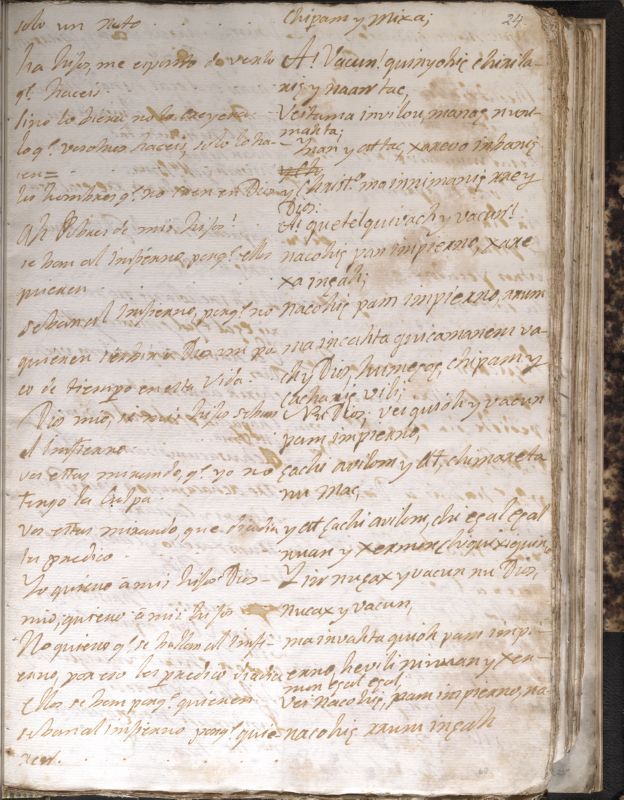 24
solo un rato.
ha hijos, me espanto de verlo
q.e haceis.
sino lo viera no lo creyera.
lo q.e vosotros haceis, solo lo ha-
cen=
los hombres q.e no creen en Dios
Ah Pobres de mis hijos!
se ban al Infierno, porq.e ellos
quieren.
se ban al Infierno, porq.e no
quieren servir a Dios un po
co de tiempo en esta Vida.
Dios mio, se mis hijos se ban
al Infierno.
vos estas mirando, q.e yo no
tengo la Culpa.
Vos estas mirando, que diadia
les predico.
Yo quiero â mis hijos Dios
mio, quiero â mis hijos
No quiero q.e se hallan al Infi-
erno, por eso les predico diadia
Ellos se ban porq.e quieren
se ban al Infierno porq.e quie
ren.
chipam y Mixa;
A! Vacun! quinyohiç chirila-
niç y naantac,
mahta;
Ynan y attac, xarevo inbaniç
y Christ.o ma innimaniç rae y
Dios.
A! quetelquivach y vacun!
nacohiç pan impierno, xare
xa incah;
nacohiç pam impierno, rrum
ma incahta quicamanem va-
ch y Dios, humeços, chipam y
chachariç vili;
Nu Dios, vei quioh y vacun
pam impierno,
çachi avilom y at, chimareta
nu Mac,
y at çachi avilom, chi eçal eçal
Yn nuçax y vacun nu Dios,
nuçax y vacun,
ma invahta quioh pam impi-
erno, hevili ninuan y xen-
mon eçal eçal
Vei nacohiç, pam impierno, na
nacohiç rrum inçah